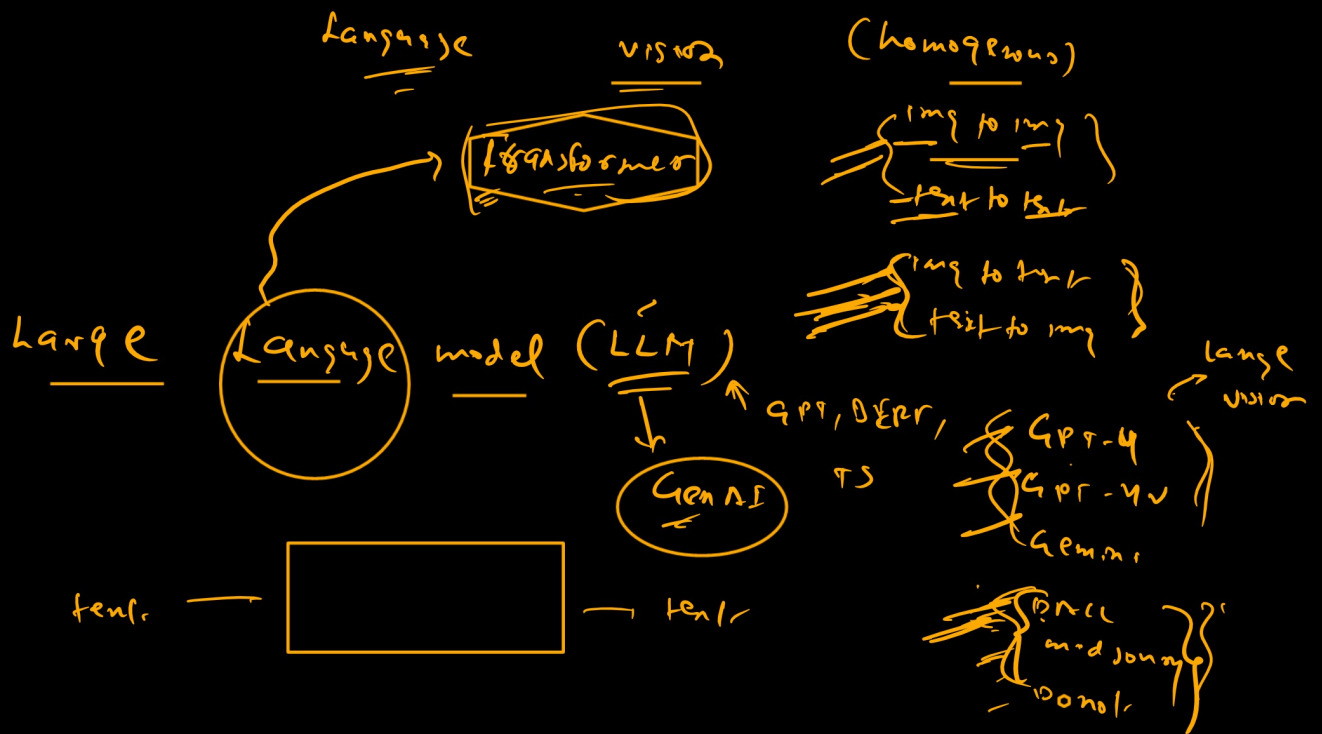 Language
vision
(homogenous)
transformer
img to img
text to text
img to text
text to img
Large Language model (LLM)
GPT, BERT,
T5
GenAI
Lange
vision
GPT-4
GPT-4V
Gemini
text
text
DALL
midjourny
Donot